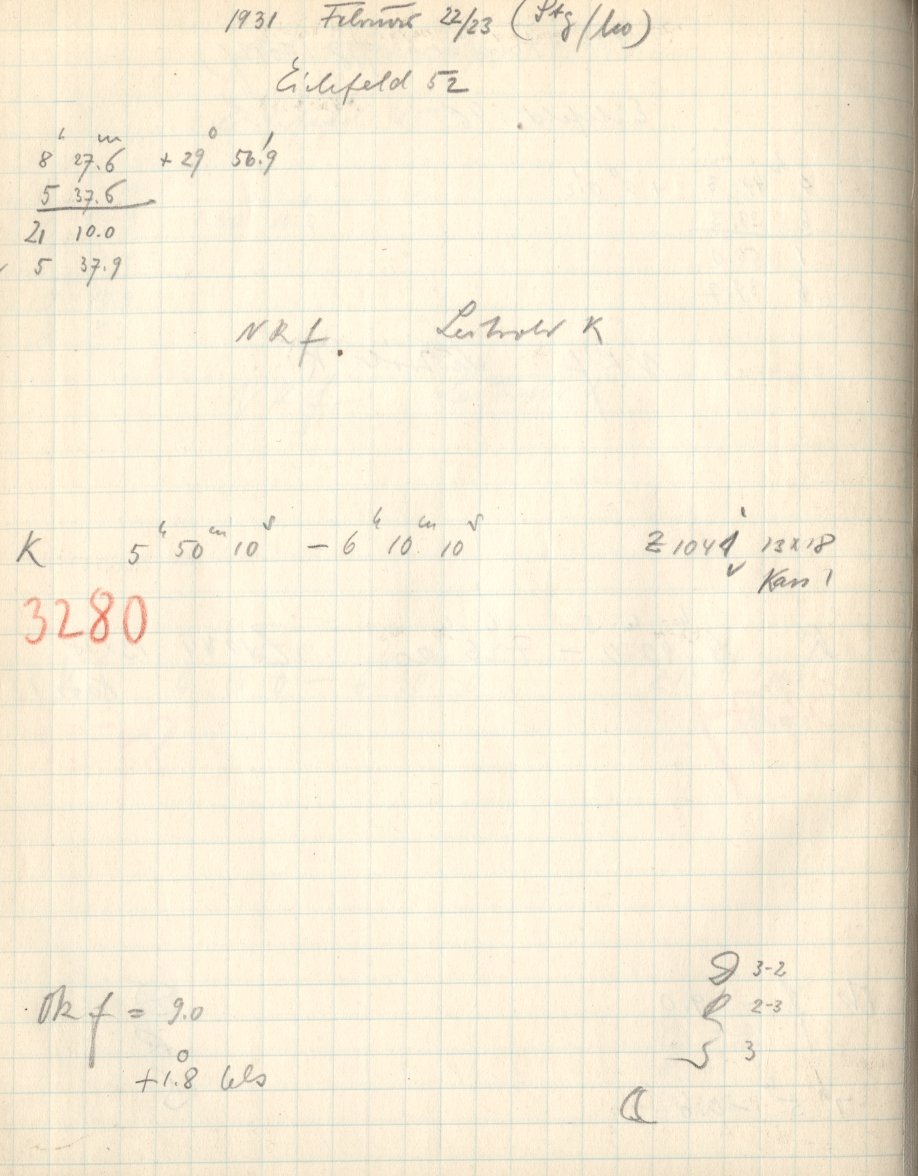 1931 Februar 22/23 (Stg/Mo)
Eichfeld 52
8ʰ 27.6ᵐ +29° 56.'9
5 37.6
21 10.0
5 37.9
NRf. Leitrohr K
K 5ʰ 50ᵐ 10ˢ – 6ʰ 10ᵐ 10ˢ Z 1041 13x18
Kass 1
3280
3-2
Ok f = 9.0 2-3
3
+1.8° Cels